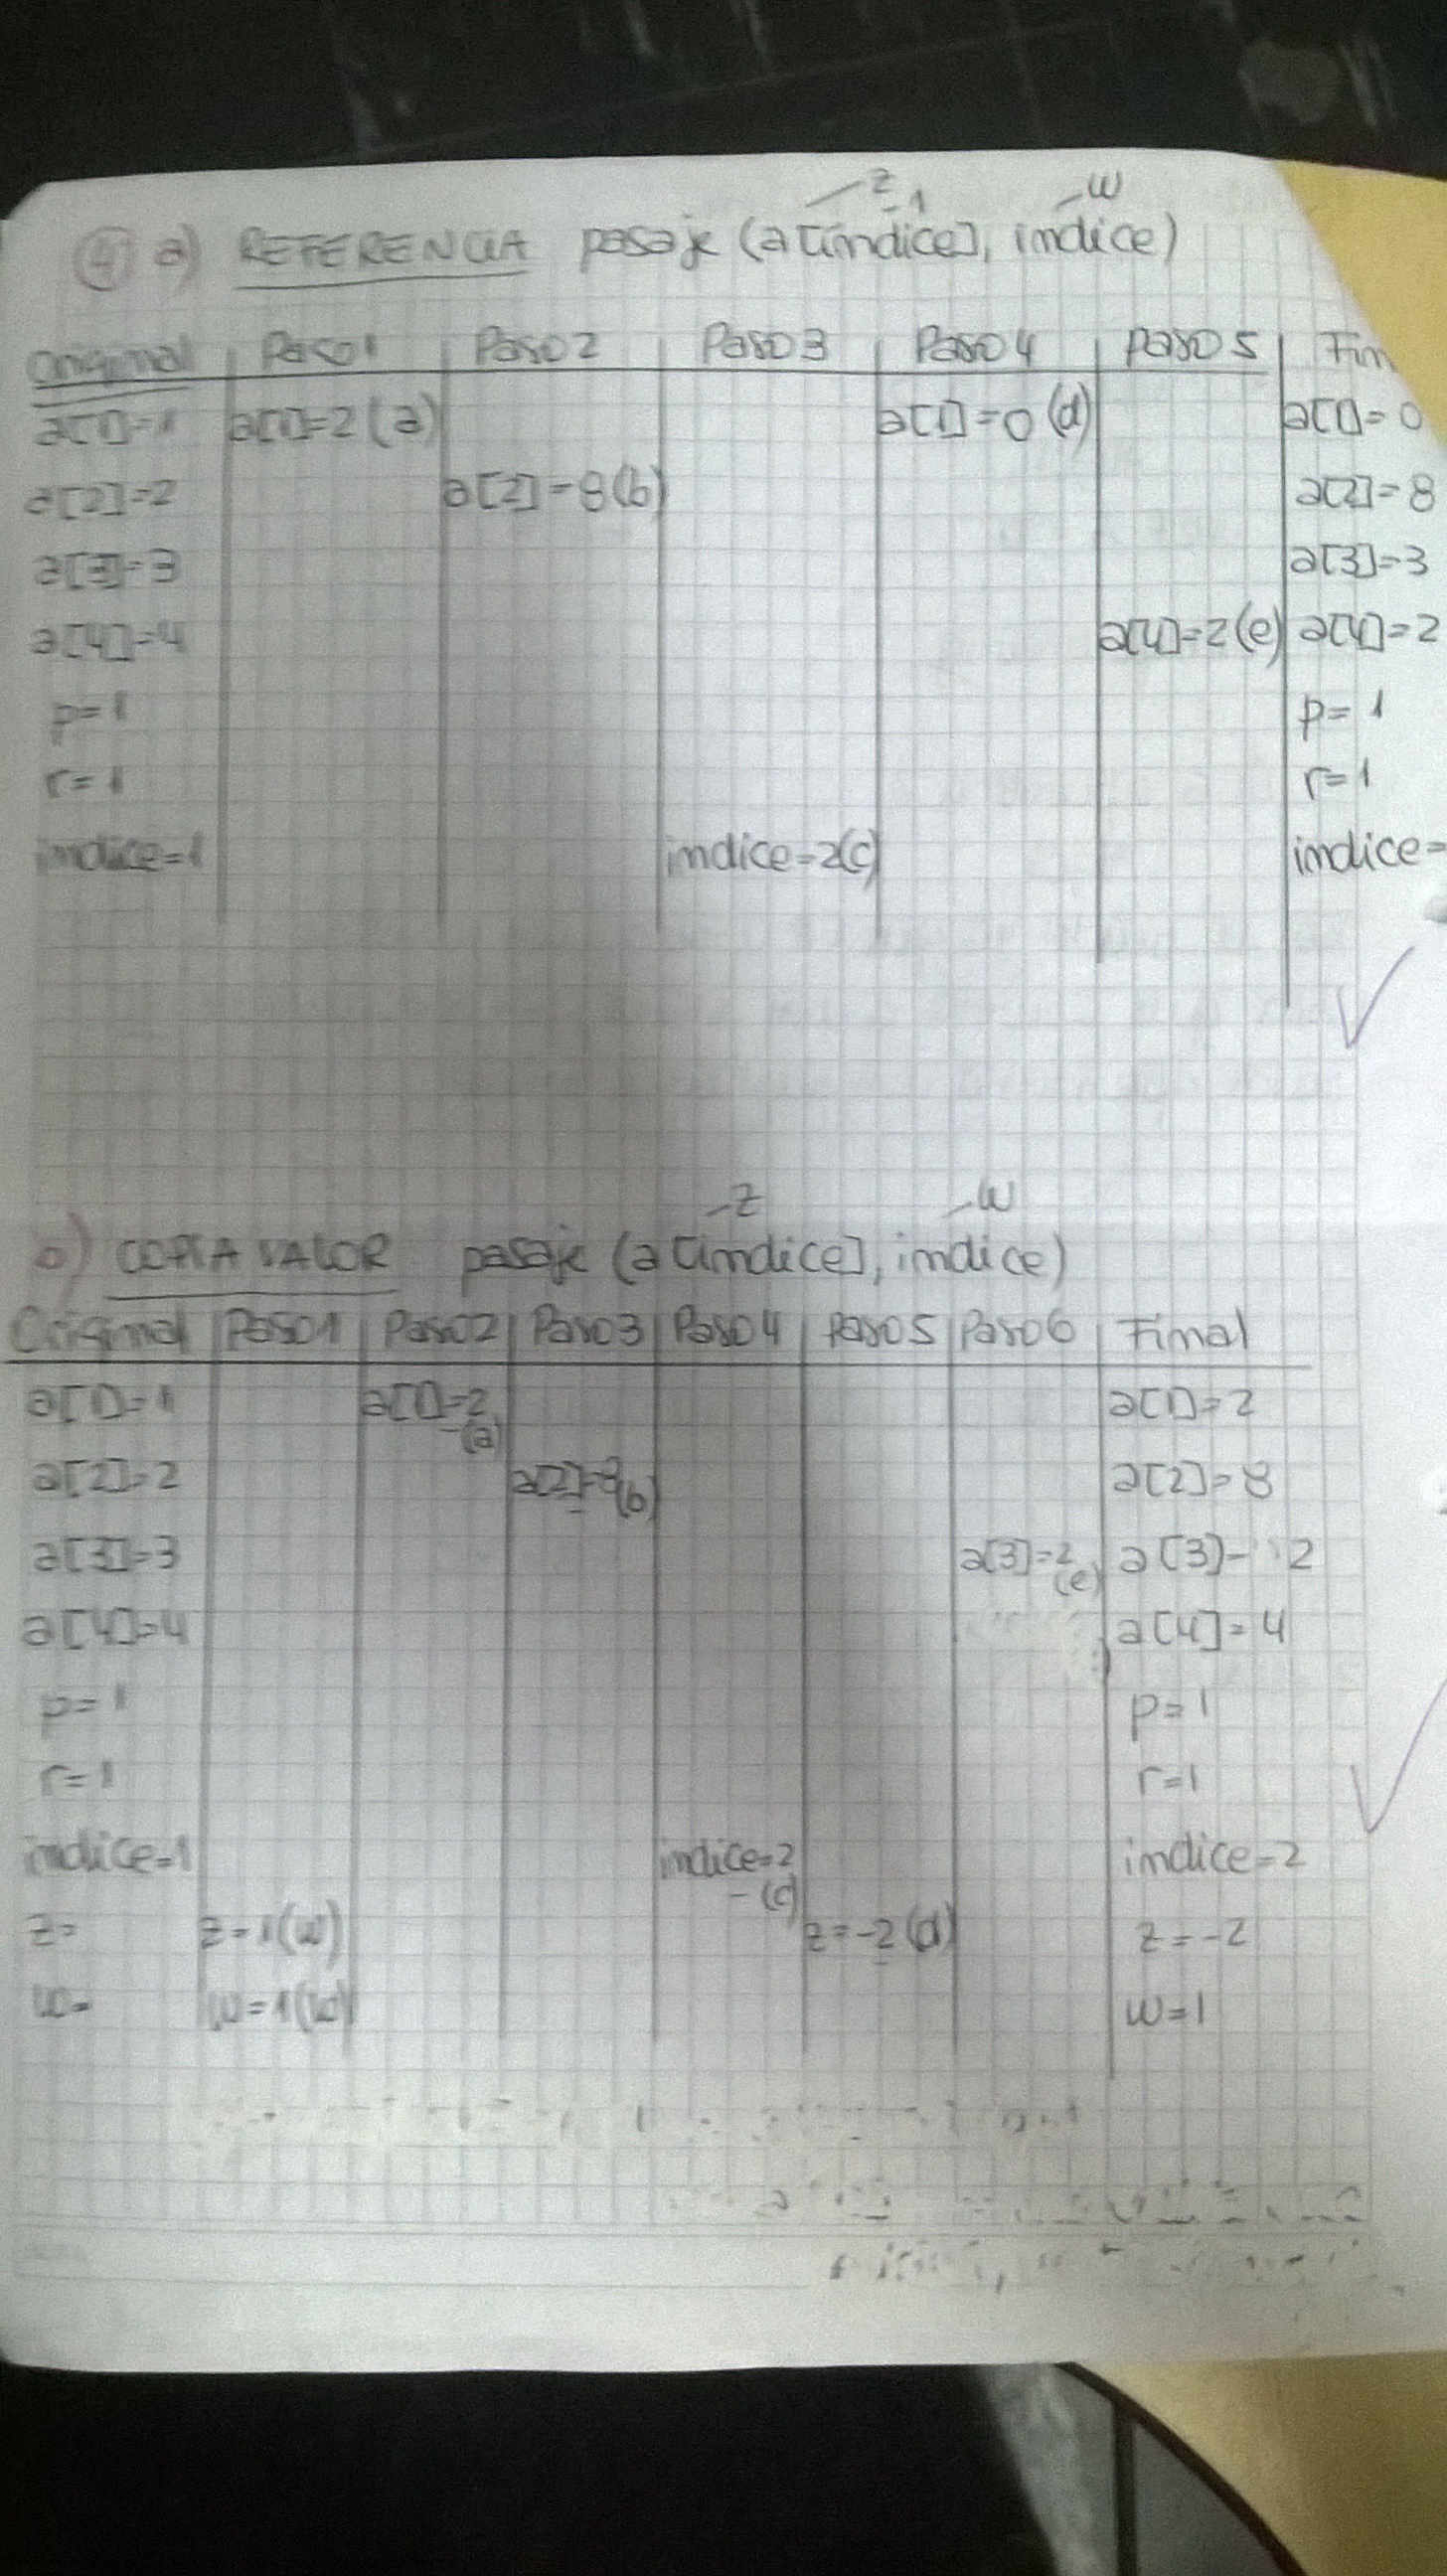 z w
④ a) REFERENCIA pasaje (a[indice], indice)
1
Original Paso1 Paso2 Paso3 Paso4 Paso5 Fin
a[1]=1 a[1]=2(a) a[1]=0(d) a[1]=0
a[2]=2 a[2]=8(b) a[2]=8
a[3]=3 a[3]=3
a[4]=4 a[4]=2(e) a[4]=2
p=1 p=1
r=1 r=1
indice=1 indice=2(c) indice=
z w
b) COPIA VALOR pasaje (a[indice], indice)
Original Paso1 Paso2 Paso3 Paso4 Paso5 Paso6 Final
a[1]=1 a[1]=2 (a) a[1]=2
a[2]=2 a[2]=8(b) a[2]=8
a[3]=3 a[3]=2 (e) a[3]= 2
a[4]=4 a[4]=4
p=1 p=1
r=1 r=1
indice=1 indice=2 (c) indice=2
z= z=1(w) z=-2(d) z=-2
w= w=1(w) w=1